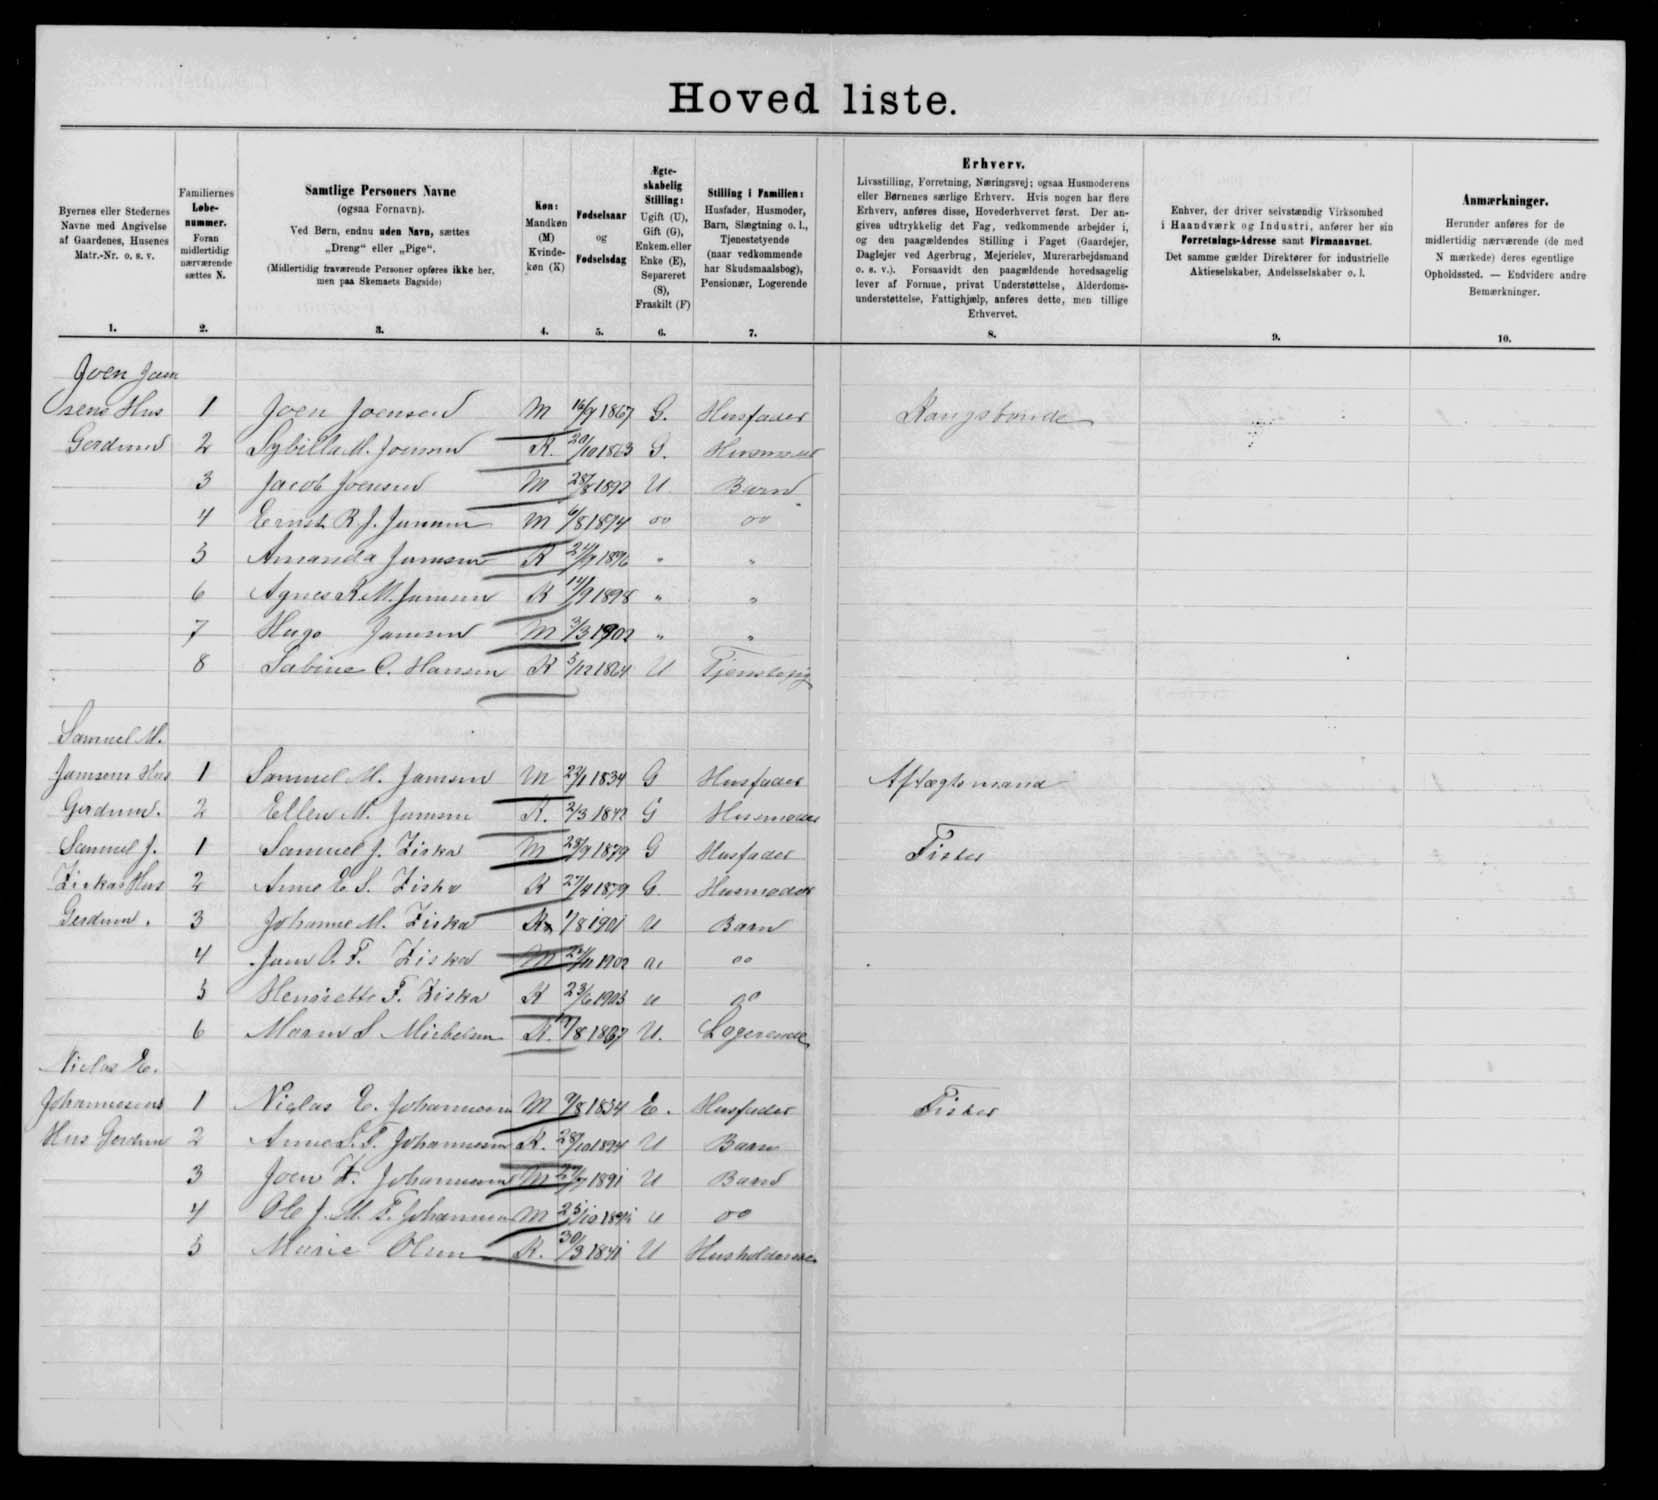 Hoved liste.
Byernes eller Stedernes Navne med Angivelse af Gaardenes, Husenes Matr.-Nr. o. s. v.
Familiernes Løbenummer. Foran midlertidig nærværende sættes N.
Samtlige Personers Navne (ogsaa Fornavn). Ved Børn, endnu uden Navn, sættes „Dreng“ eller „Pige“. (Midlertidig fraværende Personer opføres ikke her, men paa Skemaets Bagside)
Køn: Mandkøn (M) Kvinde-køn (K)
Fødselsaar og Fødselsdag
Ægte-skabelig Stilling: Ugift (U), Gift (G), Enkem. eller Enke (E), Separeret (S), Fraskilt (F)
Stilling i Familien: Husfader, Husmoder, Barn, Slægtning o. l., Tjenestetyende (naar vedkommende har Skudsmaalsbog), Pensionær, Logerende
Erhverv. Livsstilling, Forretning, Næringsvej; ogsaa Husmoderens eller Børnenes særlige Erhverv. Hvis nogen har flere Erhverv, anføres disse, Hovederhvervet først. Der angives udtrykkelig det Fag, vedkommende arbejder i, og den paagældendes Stilling i Faget (Gaardejer, Daglejer ved Agerbrug, Mejerielev, Murerarbejdsmand o. s. v.). Forsaavidt den paagældende hovedsagelig lever af Formue, privat Understøttelse, Alderdomsunderstøttelse, Fattighjælp, anføres dette, men tillige Erhvervet.
Enhver, der driver selvstændig Virksomhed i Haandværk og Industri, anfører her sin Forretnings-Adresse samt Firmanavnet. Det samme gælder Direktører for industrielle Aktieselskaber, Andelsselskaber o. l.
Anmærkninger. Herunder anføres for de midlertidig nærværende (de med N mærkede) deres egentlige Opholdssted. — Endvidere andre Bemærkninger.
1. 2. 3. 4. 5. 6. 7. 8. 9. 10.
Joen Joen
sens Hus 1 Joen Joensen M 16/9 1867 G. Husfader Kongsbonde
Gerdum 2 Sybilla M. Joensen K. 20/10 1863 G. Husmoder
3 Jacob Joensen M 28/8 1892 U Barn
4 Ernst R J. Joensen M /8 1894 oo oo
5 Amanda Joensen K 24/9 1896 " "
6 Agnes K. M. Joensen K 14/9 1898 " "
7 Hugo Joensen M 3/3 1902 " "
8 Sabine C. Hansen K 3/12 1864 U
Samuel M.
Joensens Hus 1 Samuel M. Joensen M 22/1 1834 G Husfader Aftægtsmand
Gerdum. 2 Ellen M. Joensen K. 2/3 1842 G Husmoder
Samuel J. 1 Samuel J. Ziska M 28/9 1879 G Husfader Fisker
Ziskas Hus 2 Anne E S. Ziska K 27/4 1879 G. Husmoder
Gerdum. 3 Johanne M. Ziska K 1/8 1901 U Barn
4 Joen O. F. Ziska M 1902 oo
5 Henriette F. Ziska K 23/6 1903 u oo
6 Maren S Michelsen K. /8 1867 U. Logerende
Niclas E.
Johannesens 1 Niclas E. Johannesen M 9/8 1834 E. Husfader Fisker
Hus Gerdum 2 Anne S. F. Johannesen K. 28/10 1894 U Barn
3 Joen Z. Johannesen M 1891 U Barn
4 Ole J. M. F. Johannesen M 25/10 u oo
5 Marie Olsen K. 30/3 1841 U Husholderske